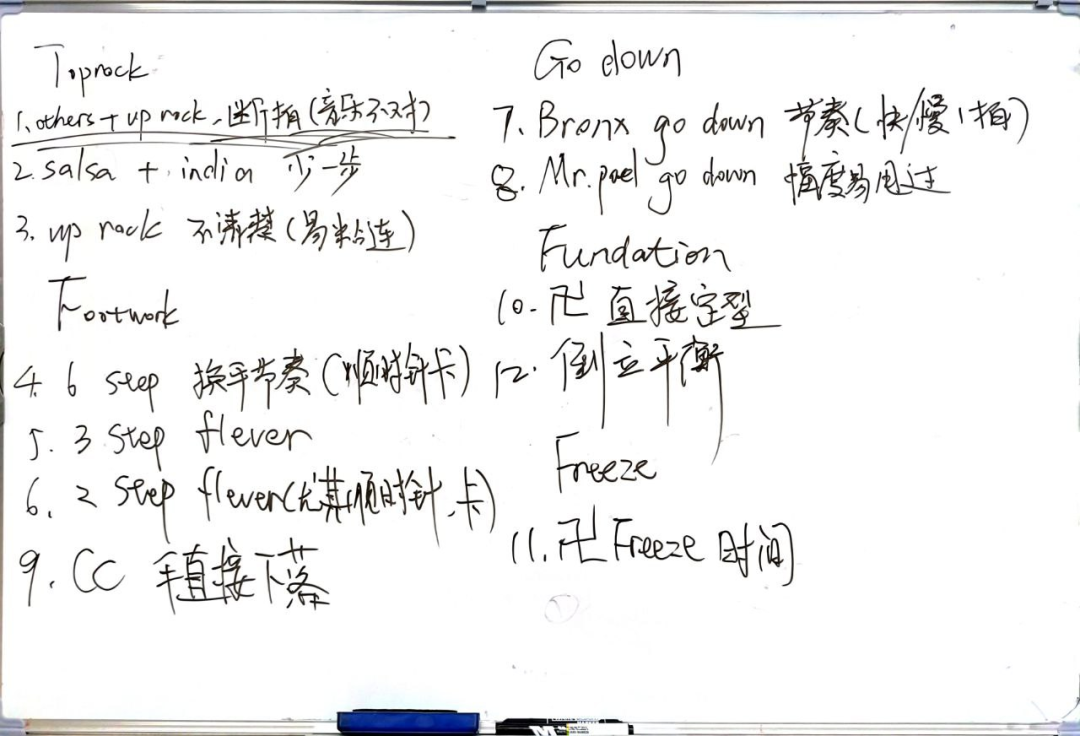 Toprock
1. others + up rock、断拍(音乐不对)
2. salsa + india 少一步
3. up rock 不清楚(易粘连)
Footwork
4. 6 step 换手节奏(顺时针卡)
5. 3 step flever
6. 2 step flever(尤其顺时针、卡)
9. CC 手直接下落
Go down
7. Bronx go down 节奏(快/慢1拍)
8. Mr. poel go down 幅度易甩过
Fundation
10. 卍 直接定型
12. 倒立平衡
Freeze
11. 卍 Freeze 时间